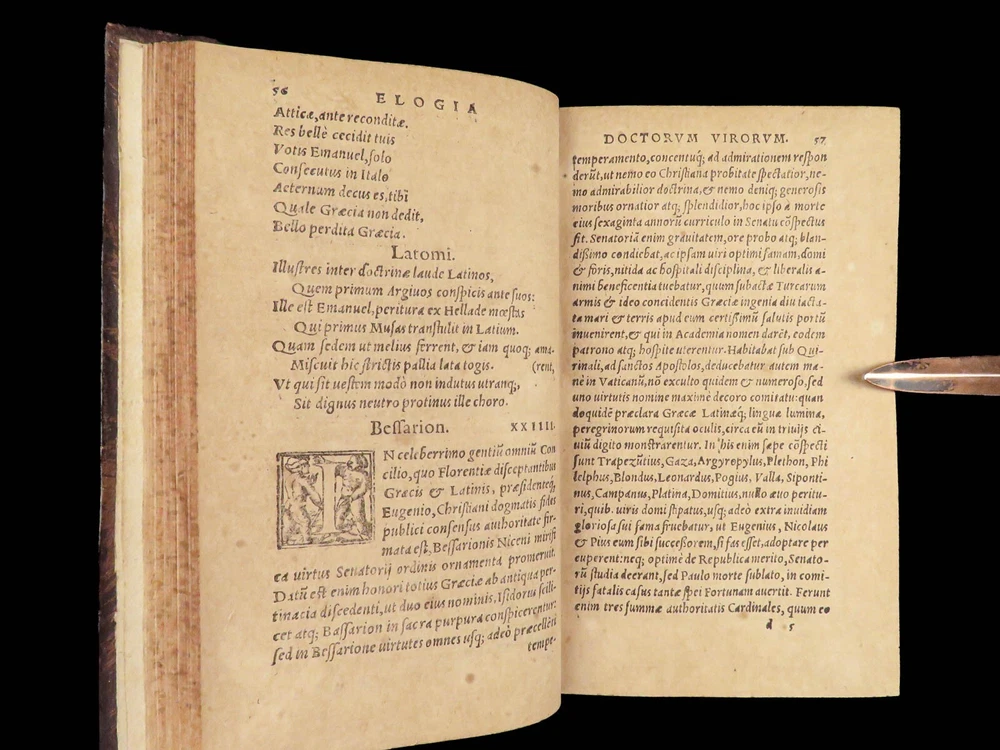 56 ELOGIA
Atticæ, ante reconditæ.
Res bellè cecidit tuis
Votis Emanuel, solo
Consecutus in Italo
Aeternum decus es, tibi
Quale Græcia non dedit,
Bello perdita Græcia.
Latomi.
Illustres inter doctrinæ laude Latinos,
Quem primum Argiuos conspicis ante suos:
Ille est Emanuel, peritura ex Hellade mœstas
Qui primus Musas transtulit in Latium.
Quam sedem ut melius ferrent, & iam quoq; ama-
Miscuit hic strictis pallia lata togis. (rent,
Vt qui sit uestem modò non indutus utranq;,
Sit dignus neutro protinus ille choro.
Bessarion. XXIIII.
IN celeberrimo gentiũ omniũ Con
cilio, quo Florentiæ disceptantibus
Græcis & Latinis, præsidenteq;
Eugenio, Christiani dogmatis fides
publici consensus authoritate fir-
mata est, Bessarionis Niceni mirifi
ca uirtus Senatorij ordinis ornamenta promeruit.
Datũ est enim honori totius Græciæ ab antiqua per-
tinacia discedenti, ut duo eius nominis, Isidorus scili-
cet atq; Bassarion in sacra purpura conspicerentur:
sed in Bessarione uirtutes omnes usq; adeò præcellẽti
tempe-
DOCTORVM VIRORVM. 57
temperamento, concentuq́; ad admirationem respon
derũt, ut nemo eo Christiana probitate spectatior, ne-
mo admirabilior doctrina, & nemo deniq; generosis
moribus ornatior atq; splendidior, hoc ipso à morte
eius sexaginta annorũ curriculo in Senatu cõspectus
sit. Senatoriã enim grauitatem, ore probo atq; blan-
dissimo condiebat, ac ipsam uiri optimi famam, domi
& foris, nitida ac hospitali disciplina, & liberalis a-
nimi beneficentia tuebatur, quum subactæ Turcarum
armis & ideo concidentis Græciæ ingenia diu iacta-
ta mari & terris apud eum certissimũ salutis portũ
inuenirent, & qui in Academia nomen darẽt, eodem
patrono atq; hospite uterentur. Habitabat sub Qui-
rinali, ad sanctos Apostolos, deducebatur autem ma-
nè in Vaticanũ, nõ exculto quidem & numeroso, sed
uno uirtutis nomine maximè decoro comitatu: quan
doquidẽ præclara Græcæ Latinæq́; linguæ lumina,
peregrinorum requisita oculis, circa eũ in triuijs ci-
uiũ digito monstrarentur. In his enim sæpe cõspecti
sunt Trapezũtius, Gaza, Argyropylus, Plethon, Phi
lelphus, Blondus, Leonardus, Pogius, Valla, Siponti-
nus, Campanus, Platina, Domitius, nullo æuo peritu-
ri, quib. uiris domi stipatus, usq; adeò extra inuidiam
gloriosa sui fama fruebatur, ut Eugenius, Nicolaus
& Pius eum sibi successorem, si fas esset, adoptare per
cuperent: neq; optimè de Republica merito, Senato-
rũ studia deerant, sed Paulo morte sublato, in comi-
tijs fatalis casus tantæ spei Fortunam auertit. Ferunt
enim tres summæ authoritatis Cardinales, quum eo
d 5